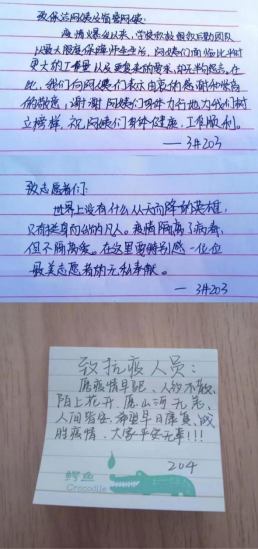 致保洁阿姨及宿管阿姨:
疫情爆发以来,学校积极组织后勤团队
以最大限度保障师生生活,阿姨们面临比平时
更大的工作量以及更复杂的要求,却无半句怨言。在
此,我们向阿姨们表示由衷的感谢和崇高
的敬意,谢谢阿姨们身体力行地为我们树
立榜样,祝阿姨们身体健康,工作顺利。
——3#203
致志愿者们:
世界上没有什么从天而降的英雄,
只有挺身而出的凡人。疫情隔离了病毒,
但不隔离爱。在这里要特别感一位位
最美志愿者的无私奉献。
——3#203
致抗疫人员:
愿疫情早
陌上花开,愿山河无恙,
人间皆安,希望早日康复,战
胜疫情,大家平安无事!!!
204
鳄鱼
Crocodile